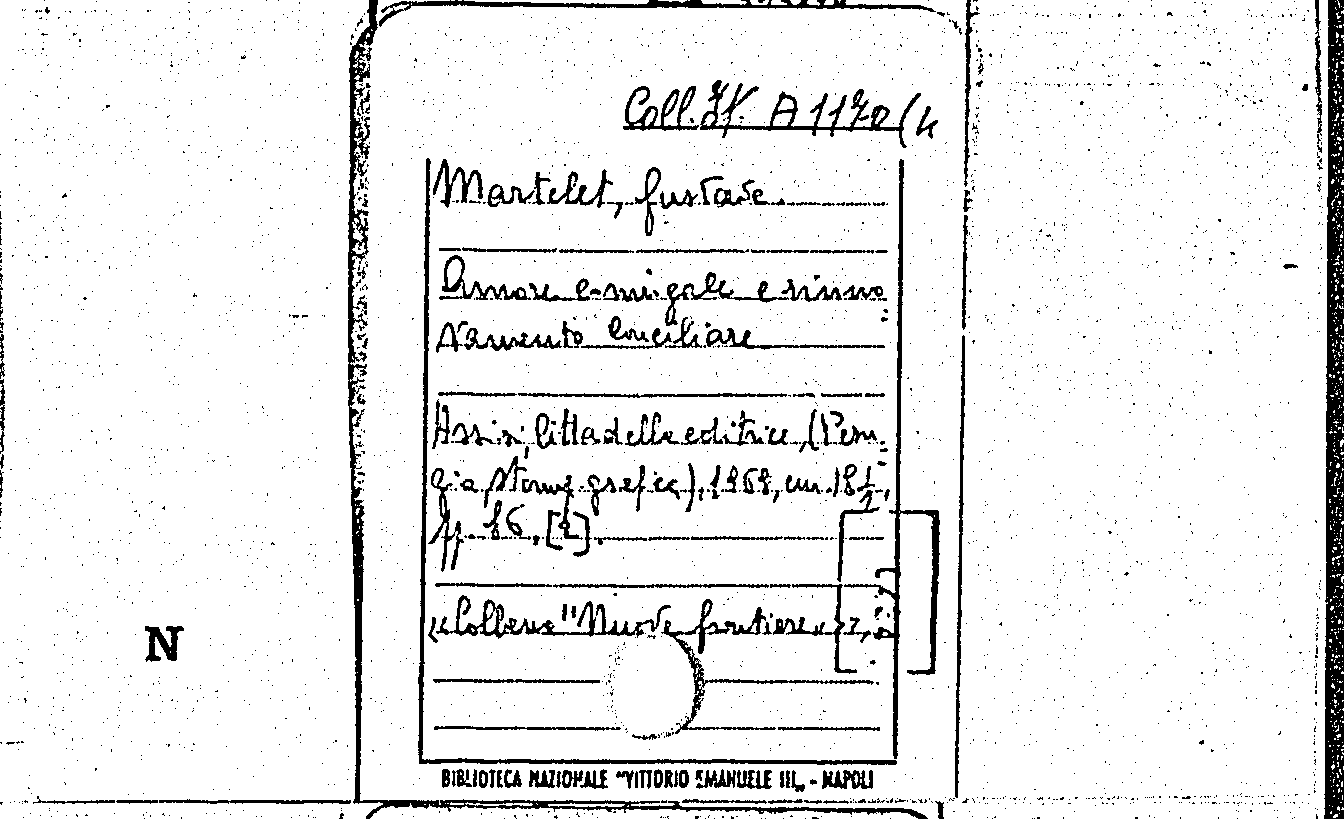 Coll. It. A 1170 (4
Martelet, Gustave.
Amore coniugale e rinno
vamento conciliare
Assisi, Cittadella editrice, (Peru-
gia, Stamp. grafica), 1968, cm. 18 1/2,
pp. 86, [2].
«Collana "Nuove frontiere"»,
N
BIBLIOTECA NAZIONALE "VITTORIO EMANUELE III„ - NAPOLI